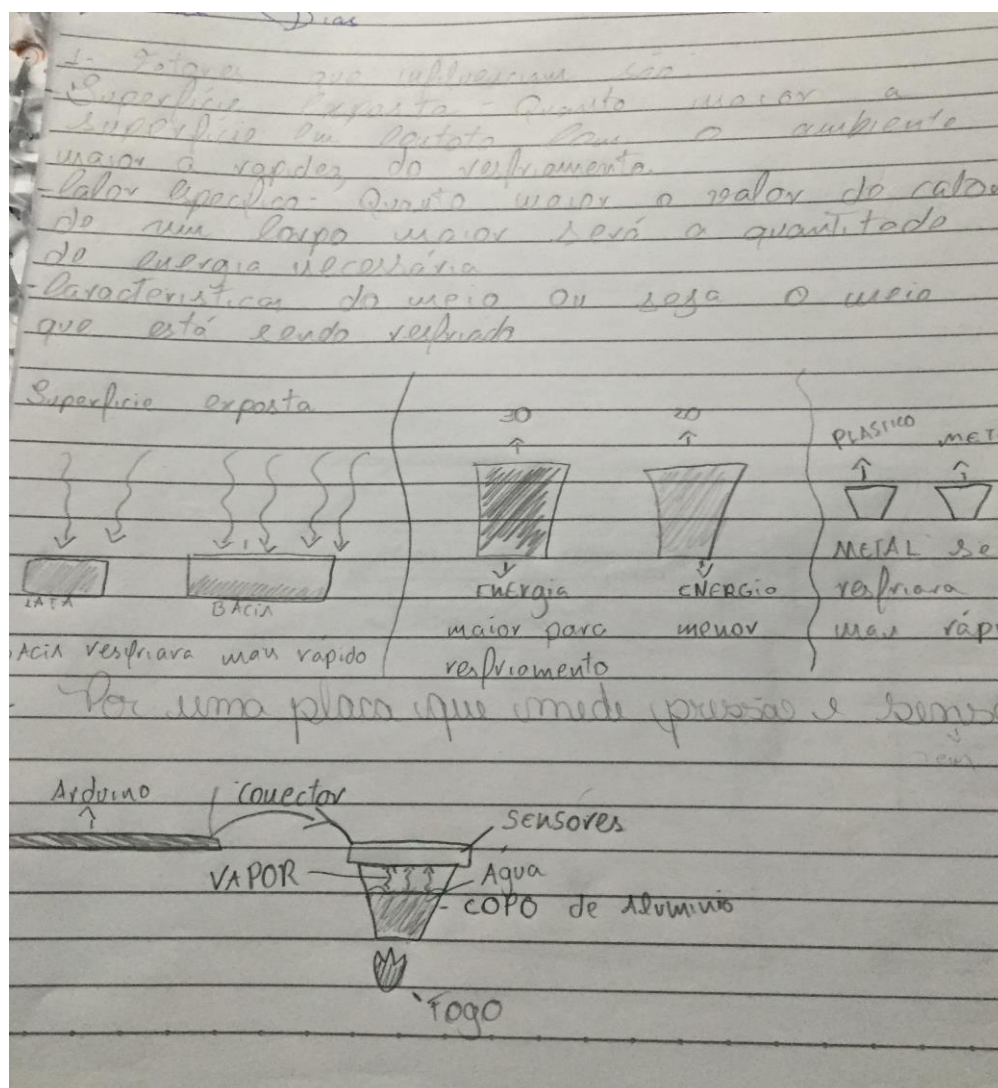 Dias
1- Fatores que influenciam são:
-Superfície exposta - Quanto maior a
superfície em contato com o ambiente
maior a rapidez do resfriamento.
-Calor Específico- Quanto maior o valor do calor
de um corpo maior será a quantitade
de energia necessária
-Caracteristicas do meio ou seja o meio
que está sendo resfriado
Superficie exposta
LATA
BACIA
BACIA resfriara mau rápido
30
20
ENErgia
maior para
resfriamento
ENERGIO
menor
PLASTICO
MET
METAL se
resfriara
mau rápi
Por uma placa que mede pressão e senso
Arduino
conector
SENSORES
VAPOR
Água
COPO de Aluminio
FOGO